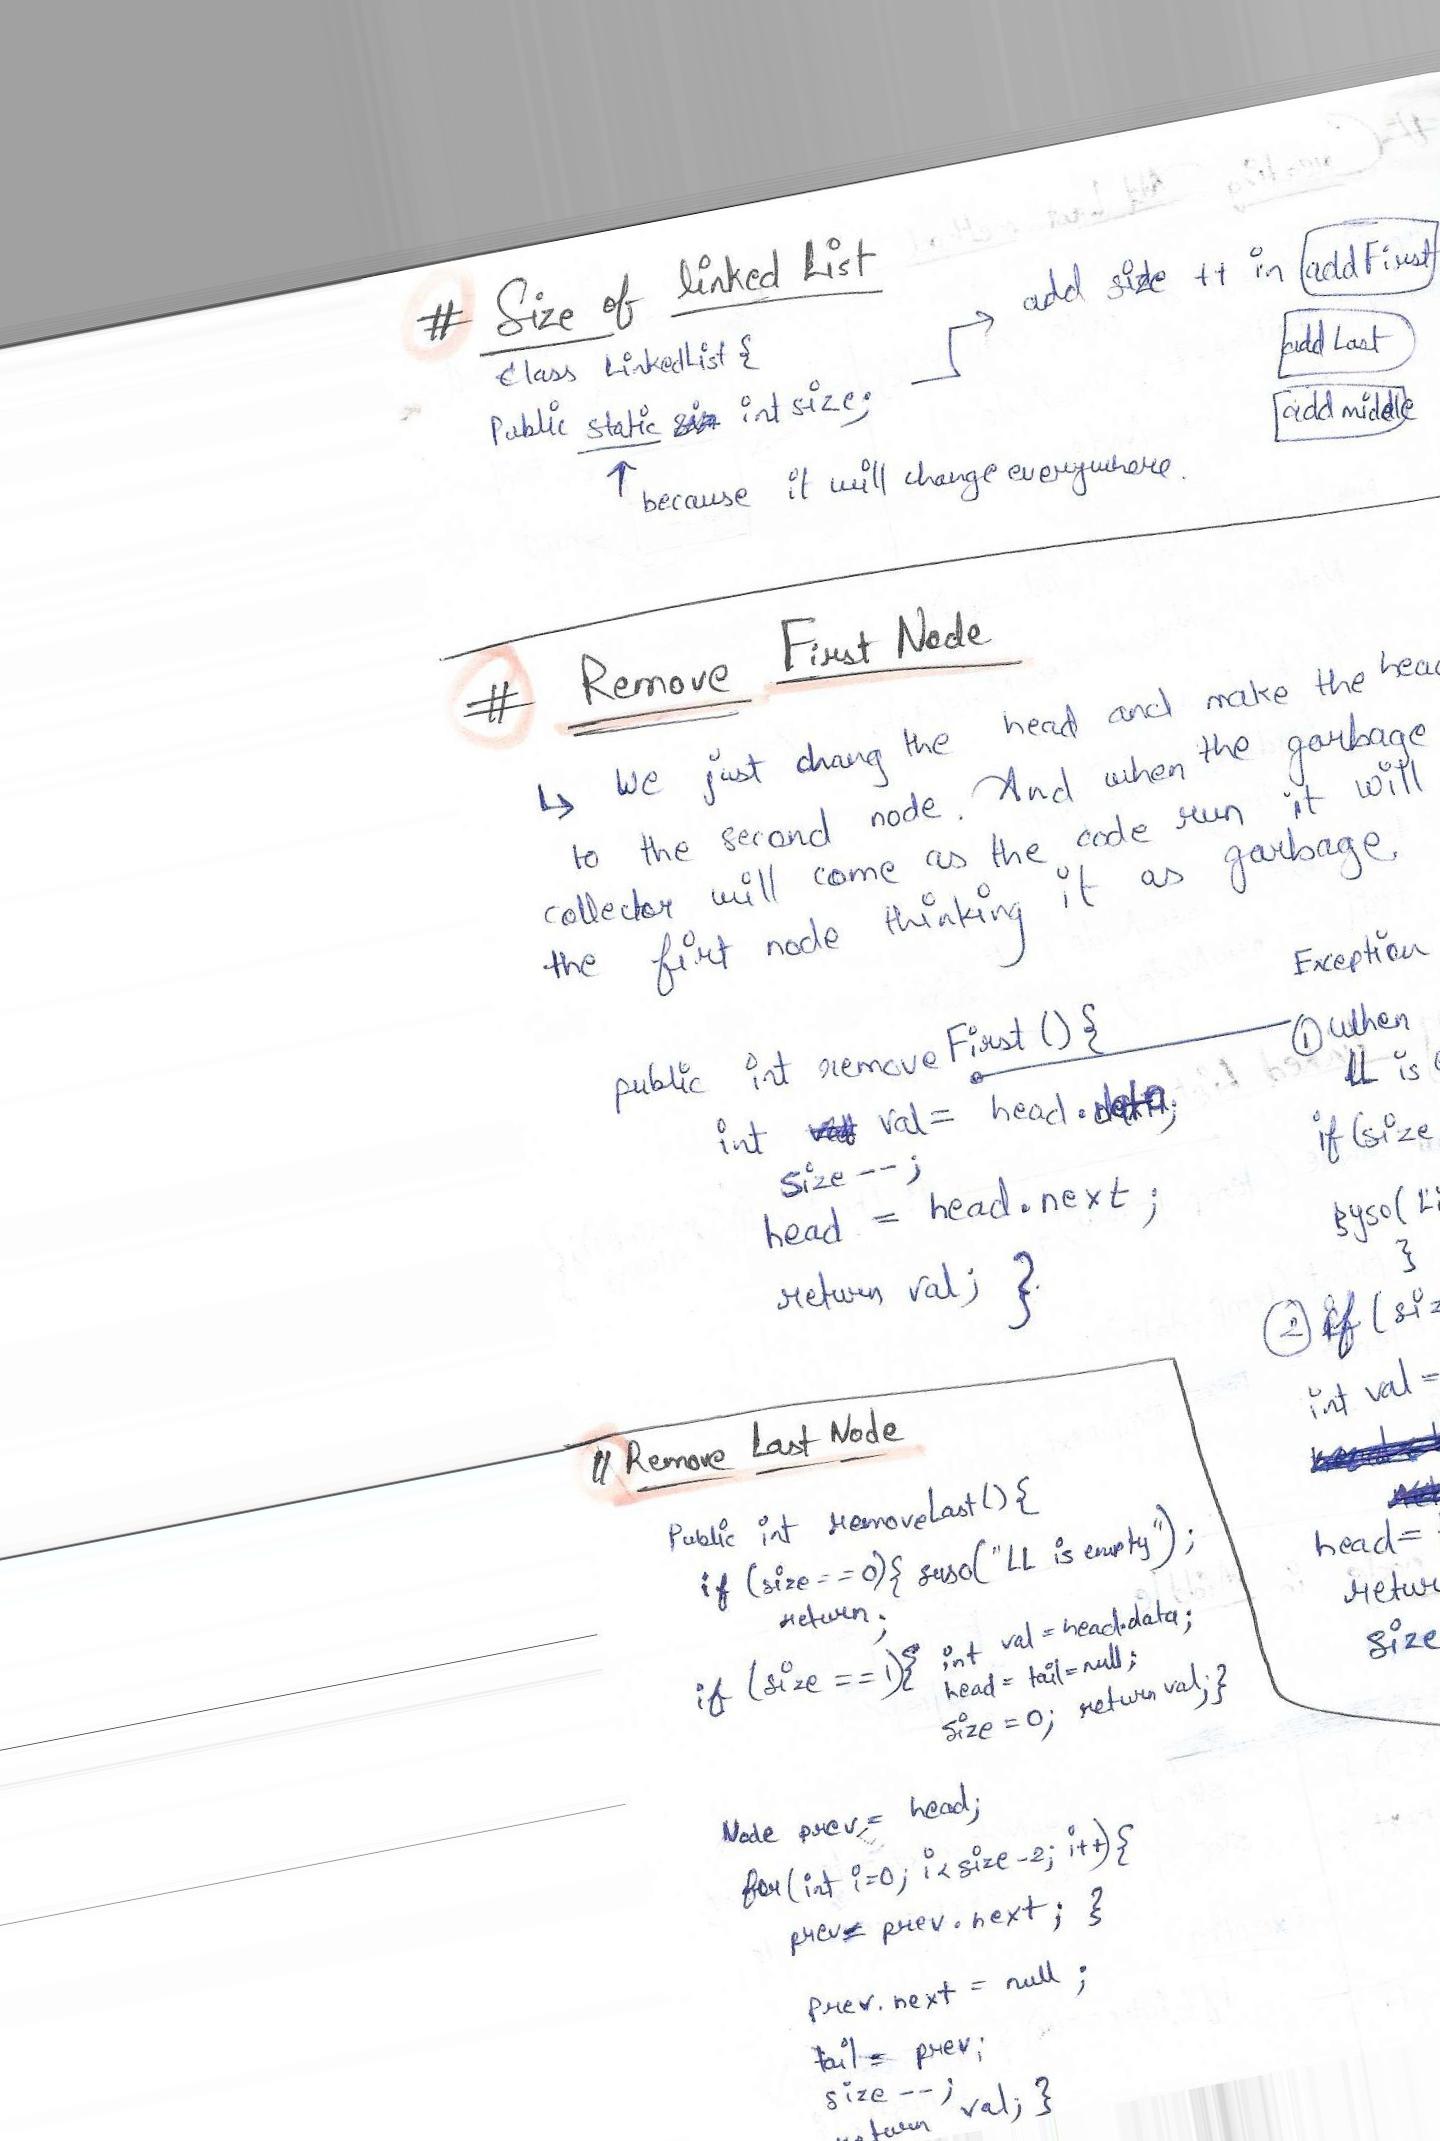 # Size of linked List
Class LinkedList {
Public static int size;
because it will change everywhere.
add size ++ in addFirst
add Last
add middle
# Remove First Node
↳ We just chang the head and make the head
to the second node. And when the garbage
collector will come as the code run it will
the firt node thinking it as garbage.
public int removeFirst () {
int val = head.data;
size --;
head = head.next ;
return val; }
Exception
① when
LL is
if (size
syso( Li
}
② if ( siz
int val =
head =
retur
size
// Remove Last Node
Public int removeLast() {
if (size == 0){ suso("LL is empty");
return;
if (size == 1){ int val = head.data;
head = tail = null;
size = 0; return val; }
Node prev = head;
for(int i=0; i< size -2; i++){
prev = prev.next ; }
prev.next = null ;
tail = prev;
size --;
return val; }